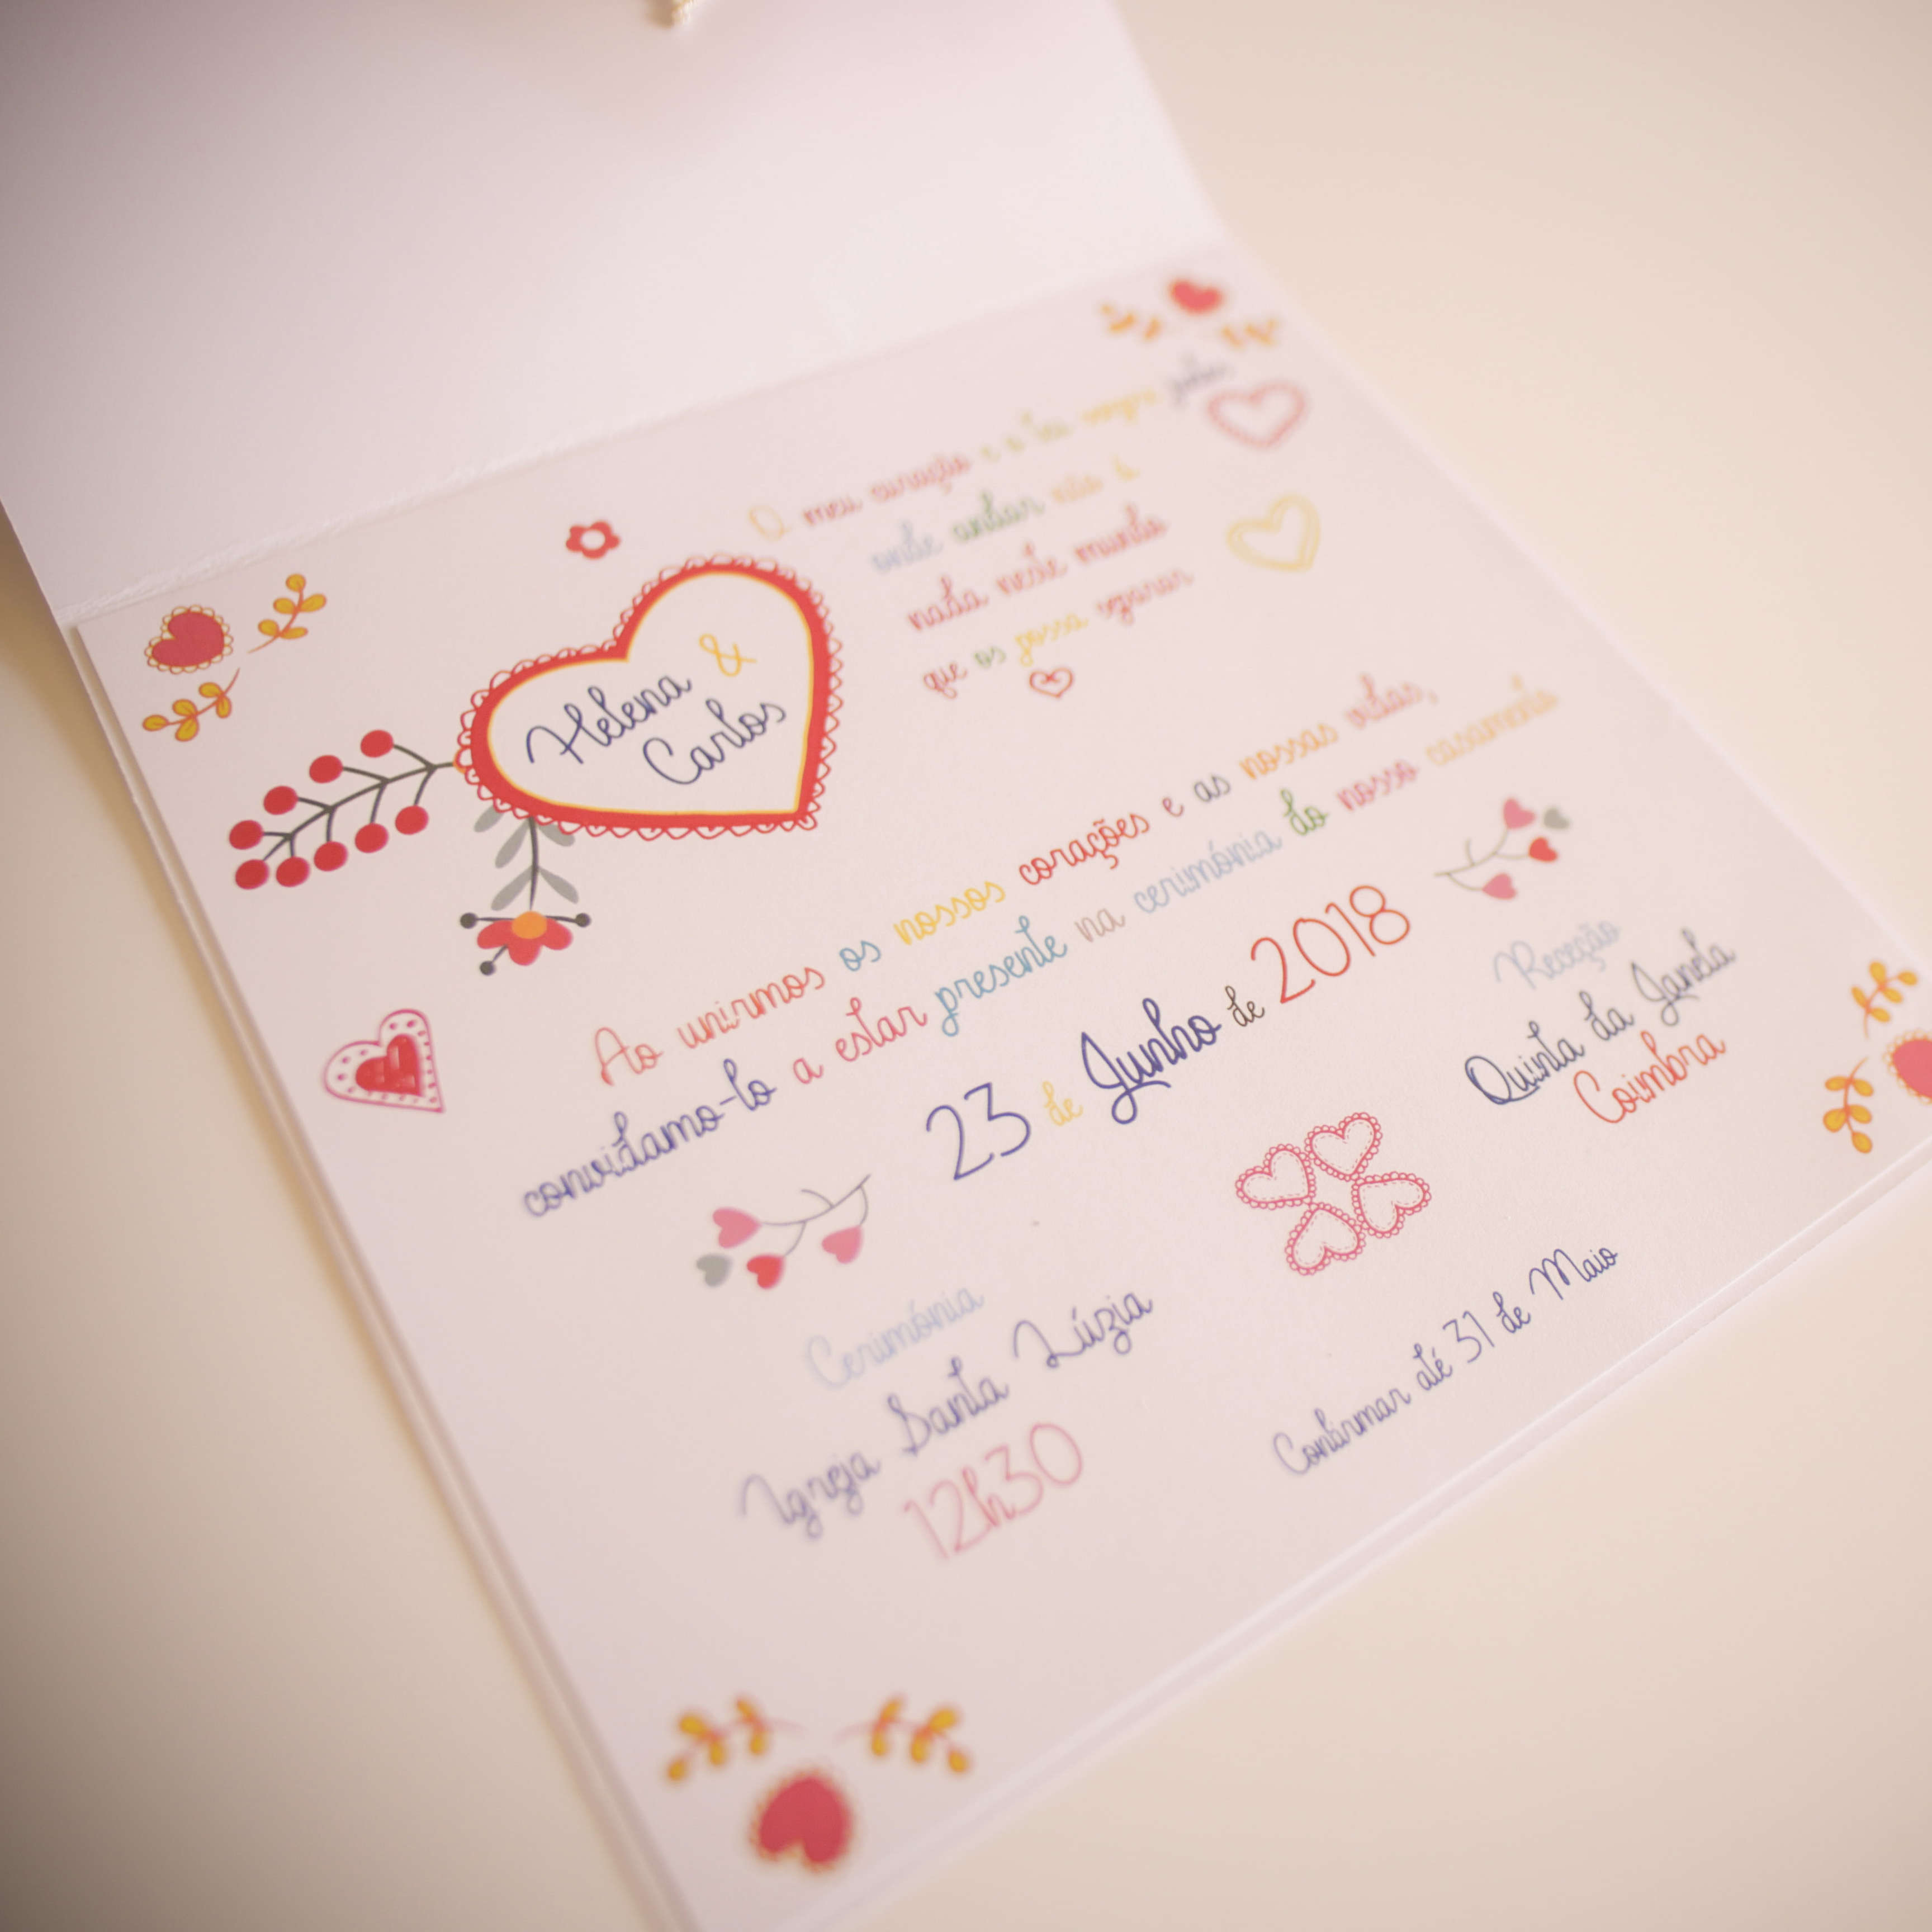 Helena &
Carlos
O meu coração e o teu sempre juntos
onde andar não á
nada neste mundo
que os possa separar
Ao unirmos os nossos corações e as nossas vidas,
convidamo-lo a estar presente na cerimónia do nosso casamento
23 de Junho de 2018
Cerimónia
Igreja Santa Lúzia
12h30
Receção
Quinta da Janela
Coimbra
Confirmar até 31 de Maio